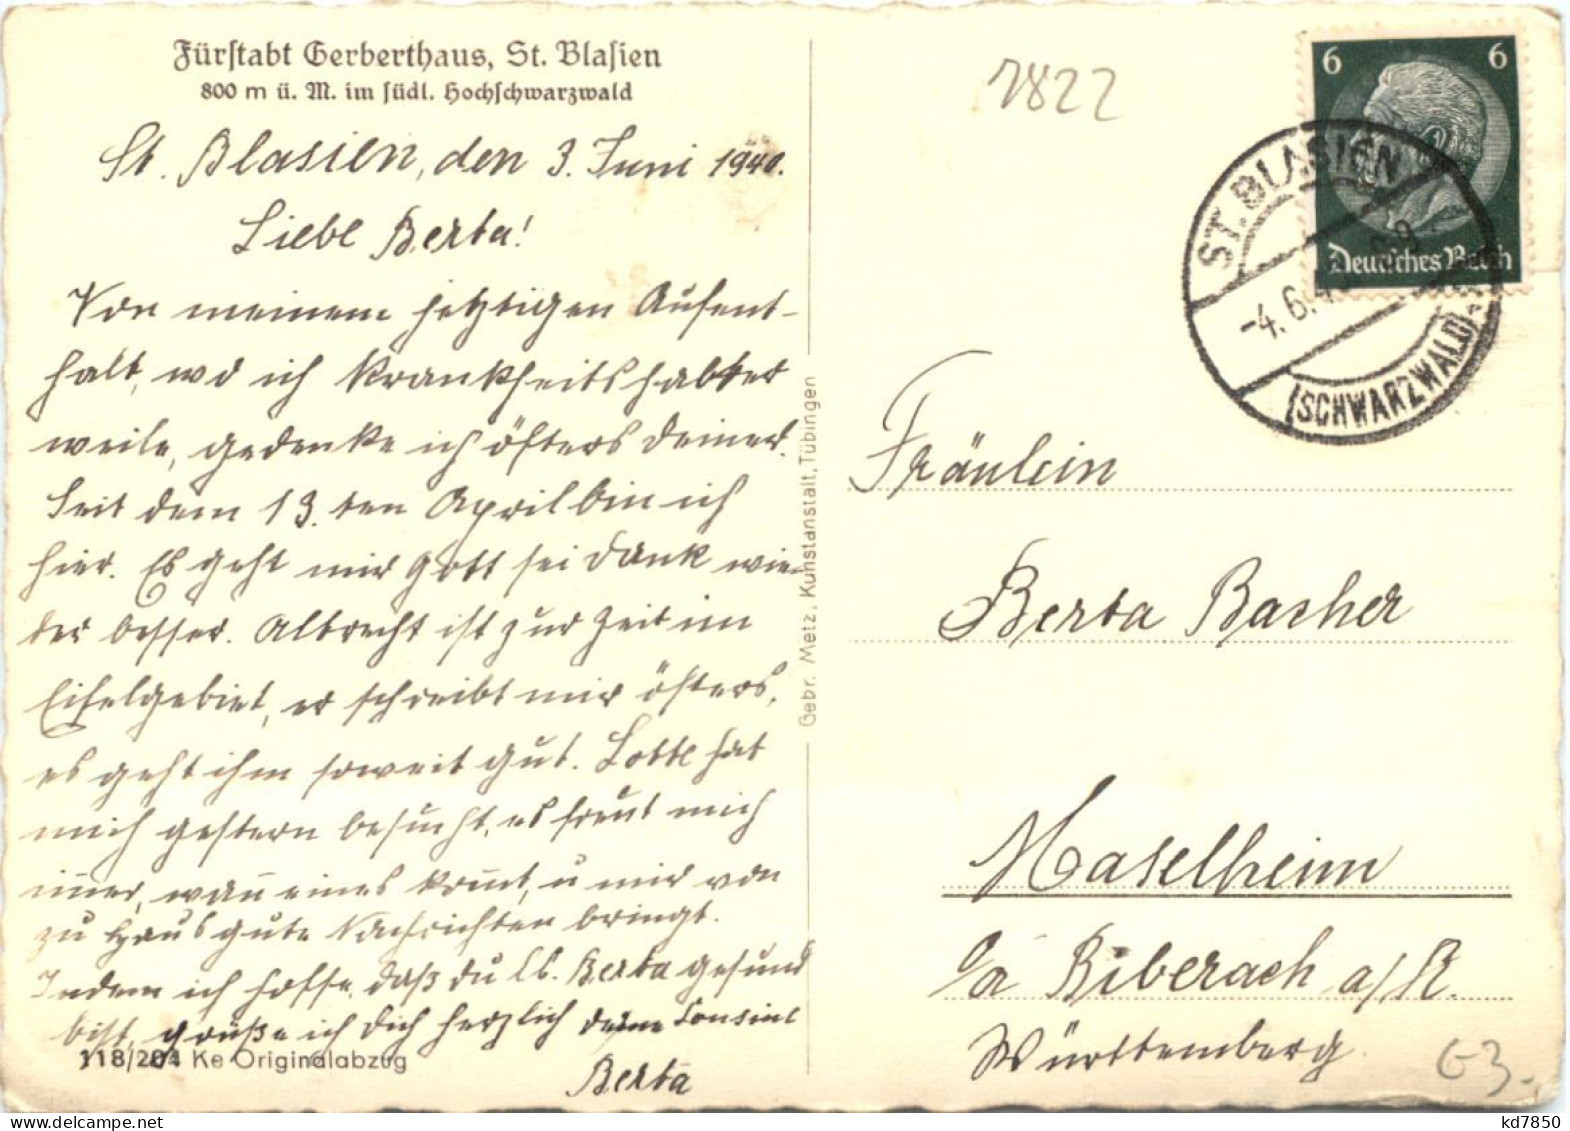 Fürstabt Gerberthaus, St. Blasien
800 m ü. M. im südl. Hochschwarzwald
St. Blasien, den 3. Juni 1940.
Liebe Berta!
Von meinem jetztigen Aufent-
halt, wo ich krankheitshalber
weile, gedenke ich öfters deiner.
Seit dem 13. ten April bin ich
hier. Es geht mir Gott sei Dank wie-
der besser. Albrecht ist zur Zeit im
Eifelgebiet, er schreibt mir öfters,
es geht ihm soweit gut. Lotte hat
mich gestern besucht, es freut mich
im̄er, wan̄ eines kom̄t, u mir von
zu Haus gute Nachrichten bringt.
Indem ich hoffe, daß du lb. Berta gesund
bist, grüße ich dich herzlich deine Cousine
Berta
118/204 Ke Originalabzug
Gebr. Metz, Kunstanstalt, Tübingen
1822
6 6
Deutsches Reich
ST. BLASIEN
-4.6.
(SCHWARZWALD)
Fräulein
Berta Bacher
Maselheim
o/a Biberach a/R.
Württemberg
G3.
kd7850